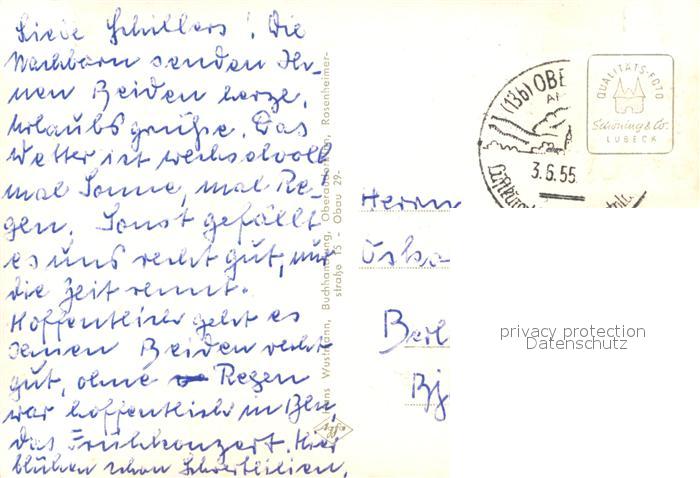 Liebe Schillers! Die
Nachbarn senden Ih-
nen Beiden herzl.
Urlaubsgrüße. Das
Wetter ist wechselvoll
mal Sonne, mal Re-
gen. Sonst gefällt
es uns recht gut, nur
die Zeit rennt.
Hoffentlich geht es
Ihnen Beiden recht
gut, ohne Regen
war hoffentlich in Bln.
das Frühkonzert. Hier
blühen schon Schwertlilien.
ans Wustmann, Buchhandlung, Oberaudorf/Inn, Rosenheimer-
straße 15 - Obau 29-
Agfa
(13b) OBE
3.6.55
QUALITÄTS-FOTO
Schöning & Co.
LÜBECK
Herrn
Oska
Berl
privacy protection
Datenschutz